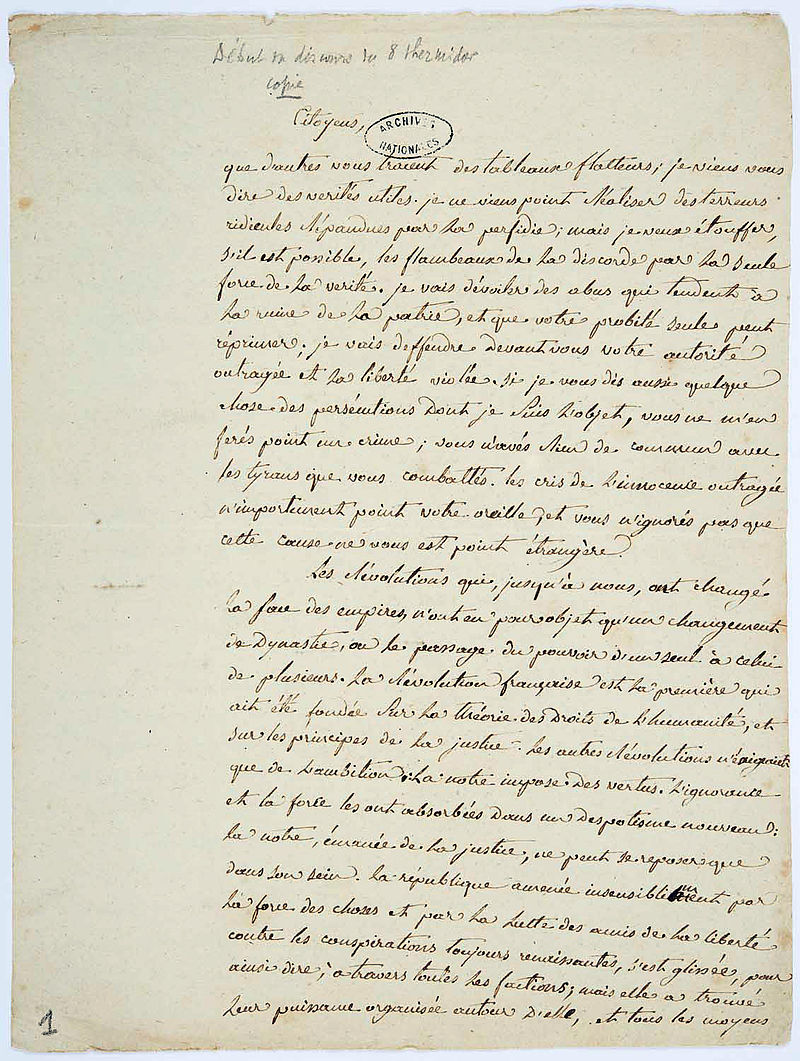 Début du discours du 8 thermidor
copie
Citoyens,
ARCHIVES
NATIONALES
que d'autres vous tracent des tableaux flatteurs; je viens vous
dire des verités utiles. je ne viens point réaliser des terreurs
ridicules répandues par la perfidie; mais je veux étouffer,
s'il est possible, les flambeaux de la discorde par la seule
force de la verité. je vais dévoiler des abus qui tendent à
la ruine de la patrie, et que votre probité seule peut
réprimer; je vais deffendre devant vous votre autorité
outragée et la liberté violée. si je vous dis aussi quelque
chose des persécutions dont je suis l'objet, vous ne m'en
ferés point un crime; vous n'avés rien de commun avec
les tyrans que vous combattés. les cris de l'innocence outragée
n'importunent point votre oreille, et vous n'ignorés pas que
cette cause ne vous est point étrangère.
Les révolutions qui, jusqu'à nous, ont changé
la face des empires, n'ont eu pour objet qu'un changement
de dynastie, ou le passage du pouvoir d'un seul à celui
de plusieurs. la révolution française est la première qui
ait été fondée sur la théorie des droits de l'humanité, et
sur les principes de la justice. les autres révolutions n'éxigeaient
que de l'ambition; la notre impose des vertus. l'ignorance
et la force les ont absorbées dans un despotisme nouveau:
la notre, émanée de la justice, ne peut se reposer que
dans son sein. la république amenée insensiblement par
la force des choses et par la lutte des amis de la liberté
contre les conspirations toujours renaissantes, s'est glissée, pour
ainsi dire, à travers toutes les factions; mais elle a trouvé
leur puissance organisée autour d'elle, et tous les moyens
1